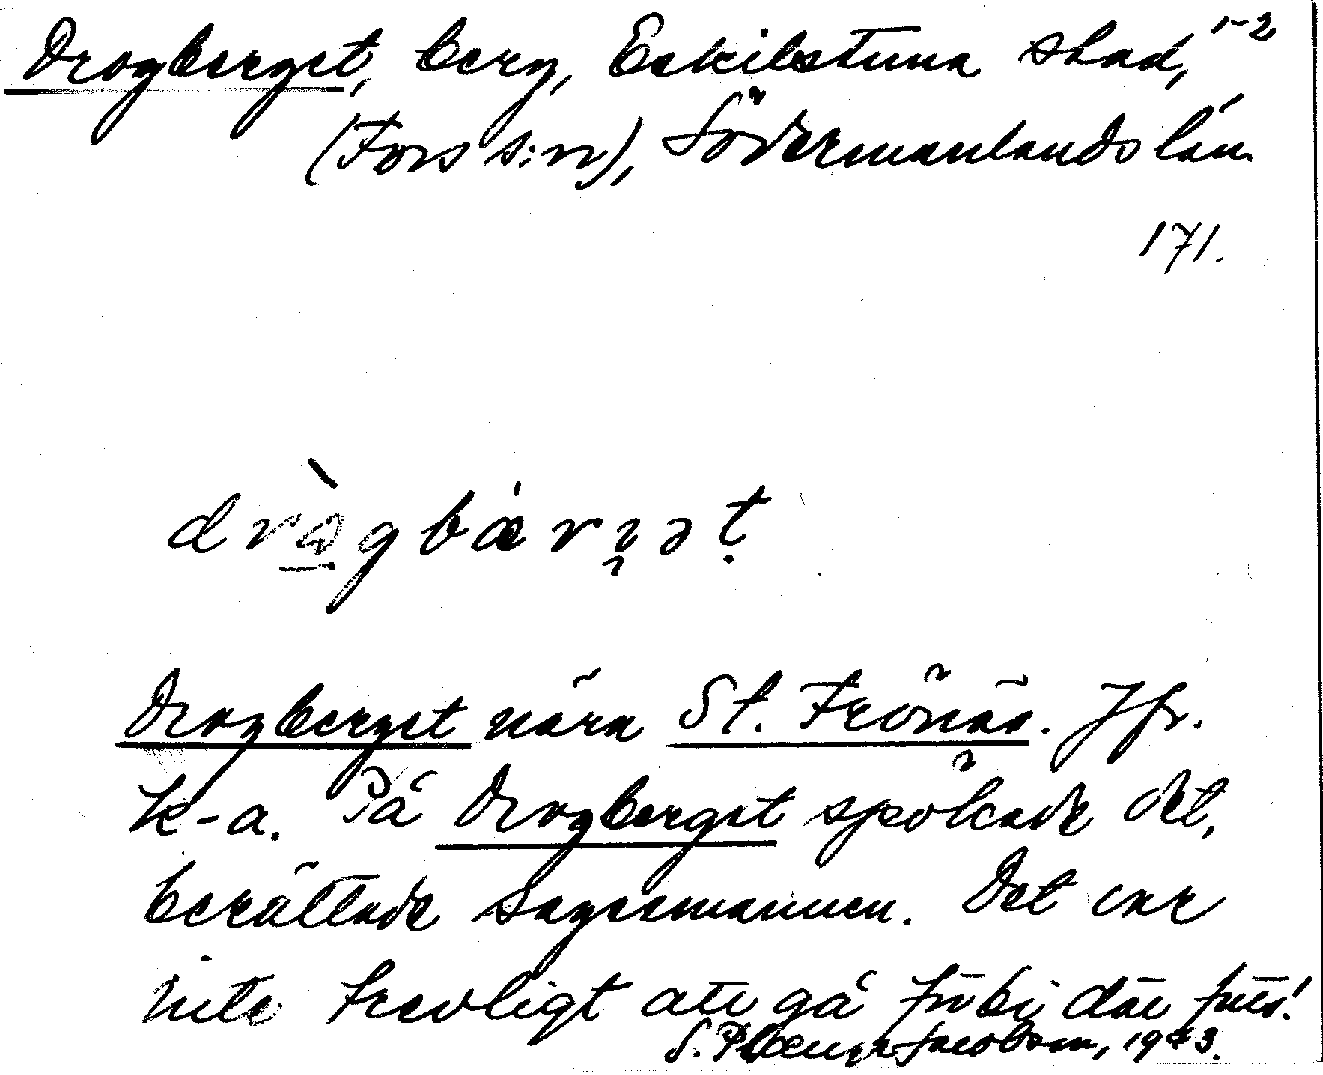 Drogberget, berg, Eskilstuna stad, 1-2
(Fors s:n), Södermanlands län
171.
Drogberget nära St. Frönäs. Jfr.
k-a. På Drogberget spökade det,
berättade sagesmannen. Det var
inte trevligt att gå förbi där förr!
S. Jacobson, 1943.